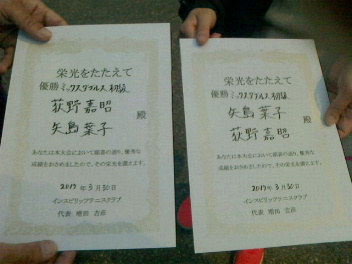 栄光をたたえて
優勝 ミックスダブルス 初級
荻野嘉昭
矢島葉子
殿
あなたは本大会において頭書の通り、優秀な
成績をおさめましたので、その栄光を讃えます。
2019年3月30日
インスピリッツテニスクラブ
代表 増田 吉彦
栄光をたたえて
優勝 ミックスダブルス 初級
矢島葉子
荻野嘉昭
殿
あなたは本大会において頭書の通り、優秀な
成績をおさめましたので、その栄光を讃えます。
2019年3月30日
インスピリッツテニスクラブ
代表 増田 吉彦